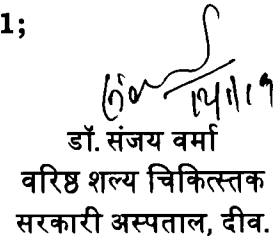 1;
12/1/19
डॉ. संजय वर्मा
वरिष्ठ शल्य चिकित्स्तक
सरकारी अस्पताल, दीव.